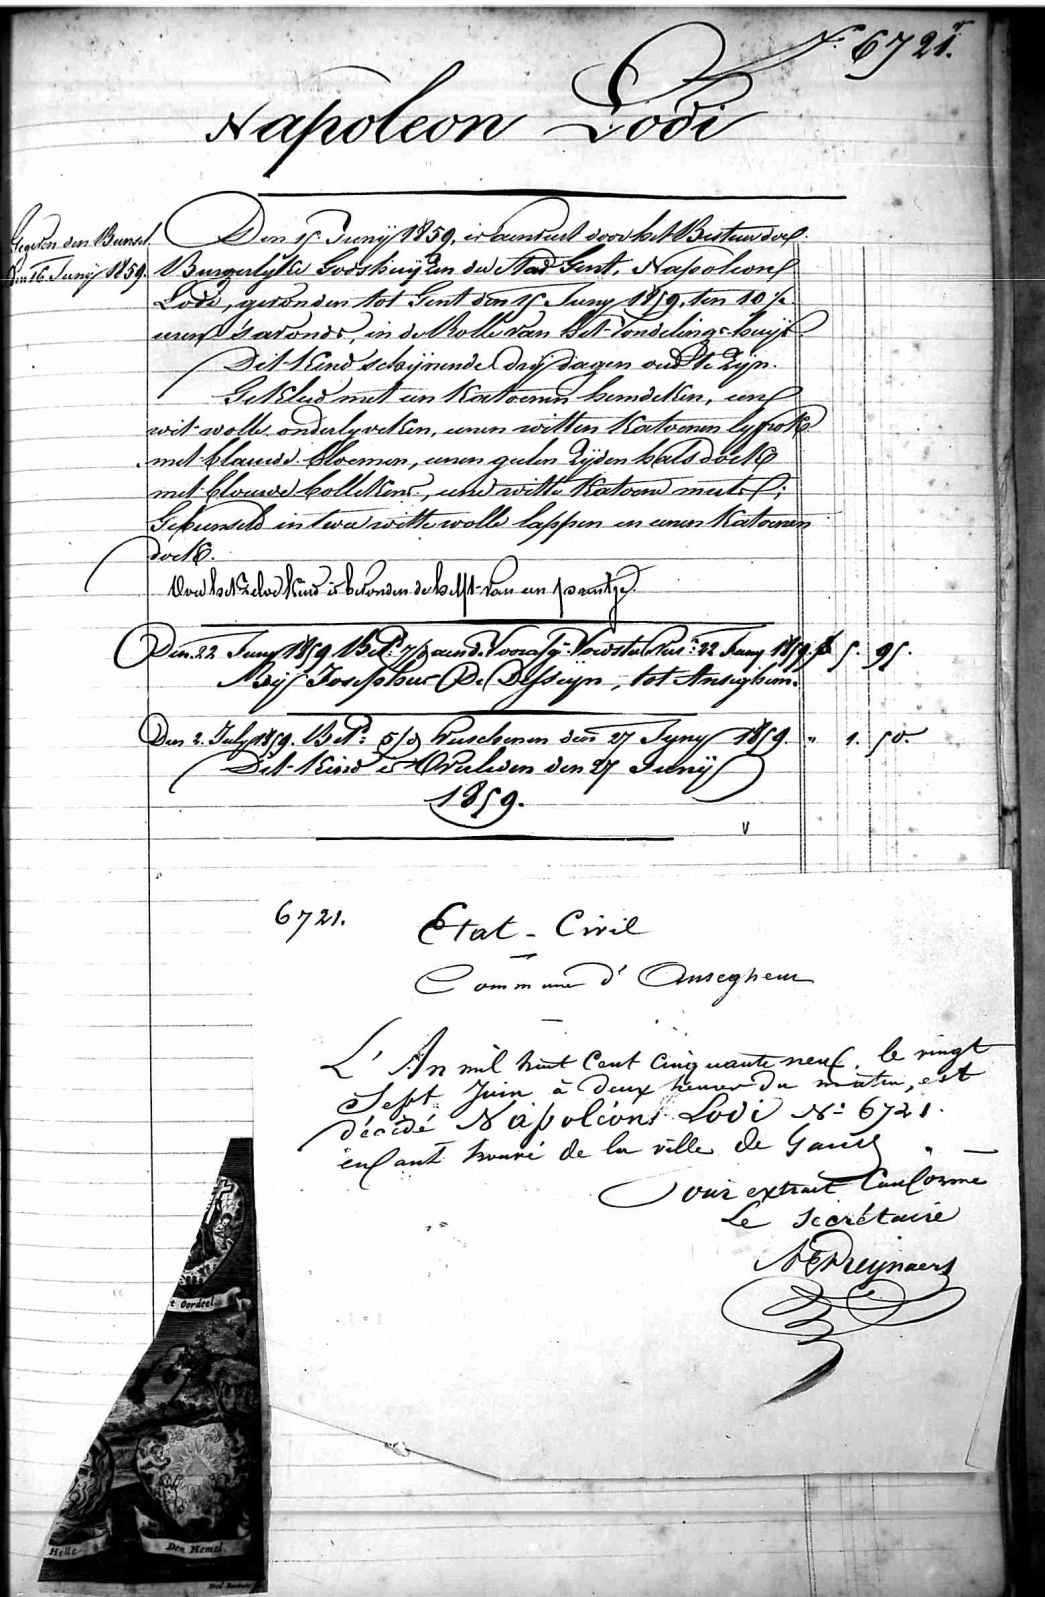 Nr 6721.
Napoleon Lodi
Den 15 Junij 1859, is aenveerd door het Bestuer der
den 16 Junij 1859.
Burgerlyke Godshuyzen der Stad Gent, Napoleon
Lodi, gevonden tot Gent den 15 Juny 1859, ten 10 ½
uren 's avonds, in de Rolle van het Vondelings-huys
Dit Kind schijnende drij dagen oud te zijn.
Gekleed met een Katoenen hemdeken, een
wit wolle onderlyveken, eenen witten Katoenen lyfrok
met blauwe bloemen, eenen geelen zijden halsdoek
met blauwe bollekens, eene witte Katoene muts;
Gebunseld in twee witte wolle lappen en eenen Katoenen
doek.
Voor het zelve Kind is bevonden de helft van een prentje.
Den 22 Juny 1859 22 Juny 1859. fr 5. 95.
Bij Josephus De Desseyn, tot Anseghem.
Den 2. July 1859. Bet. den 27 Juny 1859. " 1. 50.
Dit Kind is Overleden den 27 Junij
1859.
6721.
Etat-Civil
Commune d'Anseghem
L'An mil huit Cent Cinquante neuf, le vingt
Sept Juin à deux heures du matin, est
décédé Napoléon Lodi N° 6721.
enfant trouvé de la ville de Gand
Pour extrait Conforme
Le Secrétaire
t Oordeel
Helle
Den Hemel